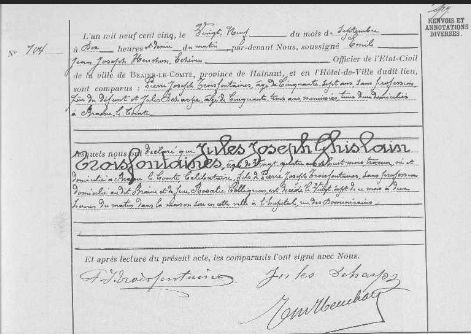 RENVOIS ET
ANNOTATIONS
DIVERSES.
N° 104
L'an mil neuf cent cinq, le Vingt Neuf du mois de Septembre
à Dix heures et demie du matin par-devant Nous, soussigné Emile
Jean Joseph Officier de l'Etat-Civil
de la ville de BRAINE-LE-COMTE, province de Hainaut, et en l'Hôtel-de-Ville dudit lieu,
sont comparus : Pierre Joseph Troisfontaines, âgé de Cinquante sept ans, sans profession,
du défunt et Jules Scharpe, âgé de Cinquante trois ans tous deux domiciliés
à Braine le Comte
lesquels nous ont déclaré que Jules Joseph Ghislain
Troisfontaines, âgé de Vingt quatre ans né et
domicilié à Braine le Comte, Célibataire, fils de Pierre Joseph Troisfontaines, sans profession
domicilié audit Braine et de est décédé le Vingt sept de ce mois à
heures du matin dans la maison sise en cette ville à l'hôpital, rue des Dominicains.
Et après lecture du présent acte, les comparants l'ont signé avec Nous.
Troisfontaines Jules Scharpe